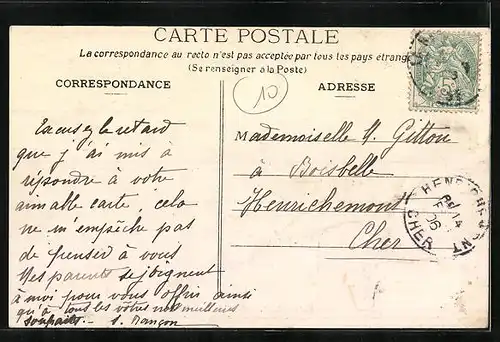 CARTE POSTALE
La correspondance au recto n'est pas acceptée par tous les pays étrang
(Se renseigner à la Poste)
CORRESPONDANCE
ADRESSE
10
Excusez le retard
que j'ai mis à
répondre à votre
aimable carte, cela
ne m'empêche pas
de penser à vous
Mes parents se joignent
à moi pour vous offrir ainsi
qu'à tous les vôtres nos meilleurs
souhaits.
Mademoiselle Y. Gitton
à Boisbelle
Henrichemont
Cher
HENRICHEMONT
14
06
CHER